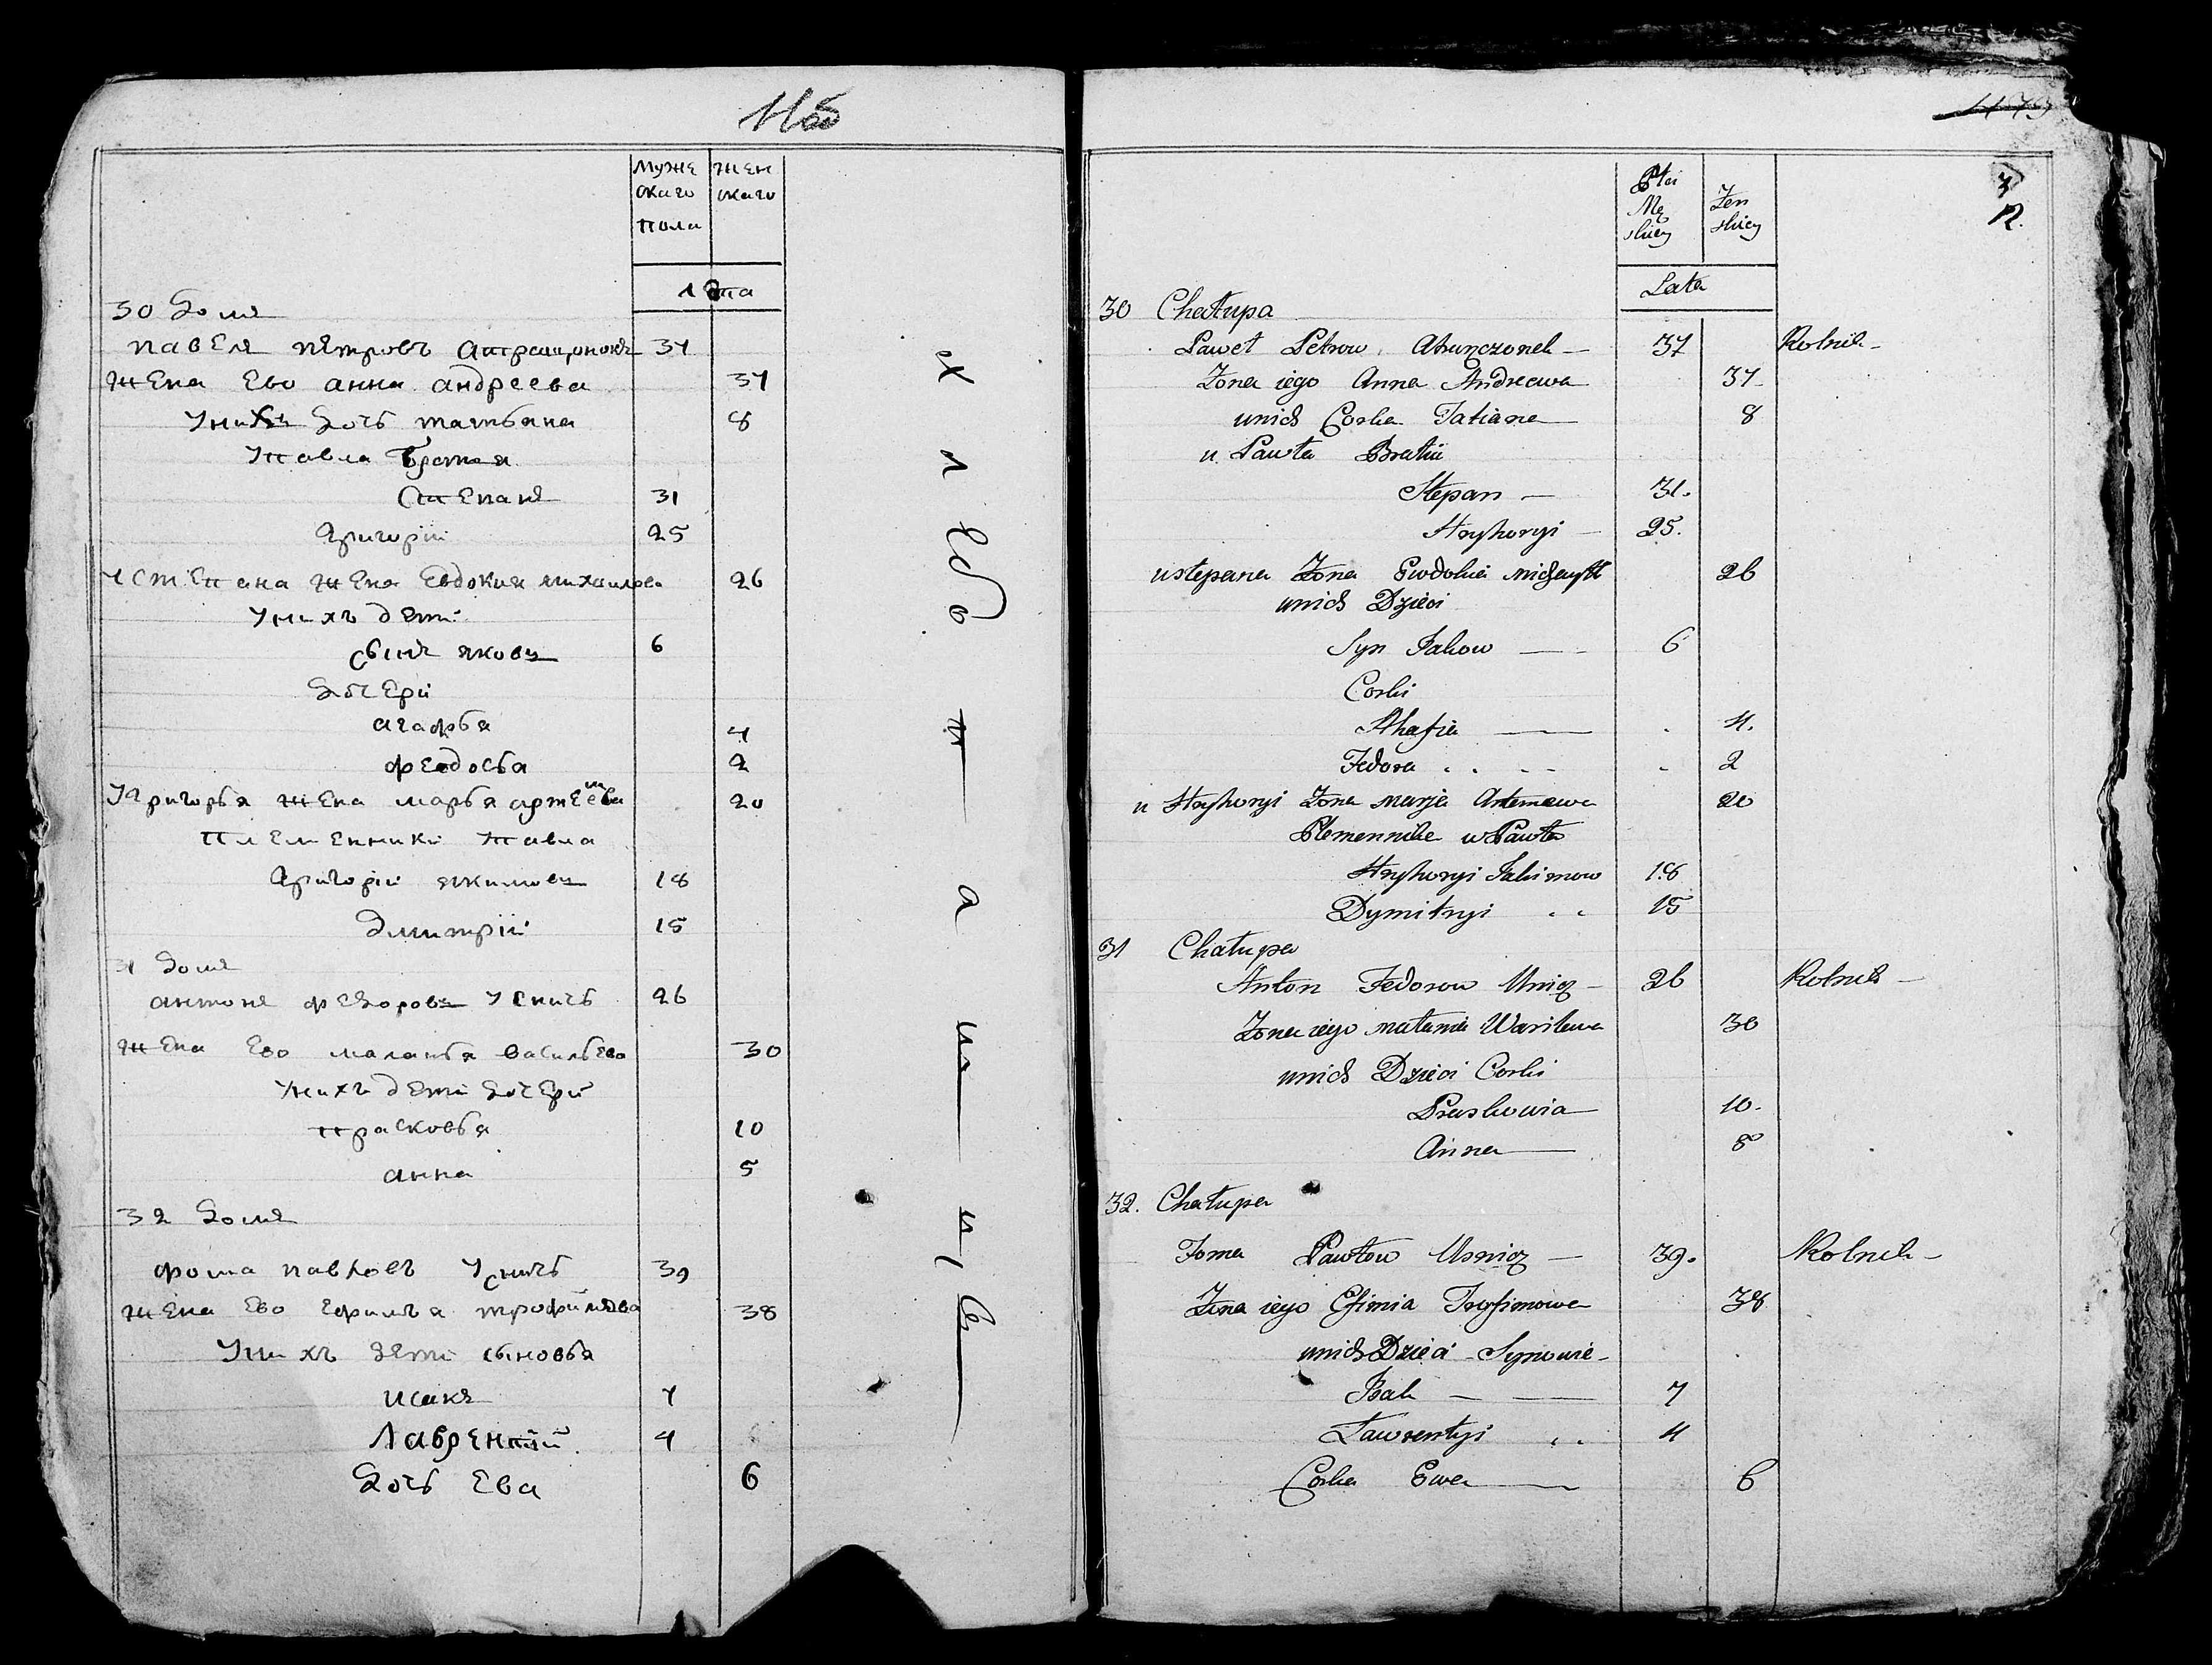 муже
скаго
пола
жен
скаго
лета
30 домъ
павелъ петровъ 37
жена ево анна андреева 37
унихъ дочь татьяна 8
упавла братья
степанъ 31
григорiй 25
устепана жена Евдокия михаилова 26
унихъ дети
сынъ яковъ 6
дочери
агафья 4
феодосья 2
угригорья жена марья артемева 20
племенники павла
григорiй якимовъ 18
дмитрiй 15
31 домъ
антонъ федоровъ усничь 26
жена ево маланья васильева 30
унихъ дети дочери
прасковья 10
анна 5
32 домъ
фома павловъ усничь 39
жена ево ефимья трофимова 38
унихъ дети сыновья
исакъ 7
Лаврентий 4
дочь Ева 6
хлебопашицы
Płci
Mę
skiey
Żen
skiey
Lata
30 Chałupa
Paweł Petrow Atraszczonek — 37 Rolnik —
Żona iego Anna Andreewa 37
unich Corka Tatiana 8
u Pawła Bratia
Stepan — 31.
Hryhoryi — 25.
ustepana Żona Ewdokia 26
unich Dzieci
Syn Jakow — 6
Corki
Ahafia — 4.
Fedora 2
u Hryhoryi Żona marja Artemewa 20
Plemennike u Pawła
Hryhoryi Jakimow 18
Dymitryi 15
31 Chałupa
Anton Fedorow Usnicz — 26 Rolnik —
Żona iego małania Wasilewa 30
unich Dzieci Corki
Praskowia 10.
Anna — 8
32. Chałupa
Foma Pawłow Usnicz — 39. Rolnik —
Żona iego Efimia Trofimowa 38
unich Dzieci Synowie
Isak — 7
Ławrentyi 4
Corka Ewa — 6